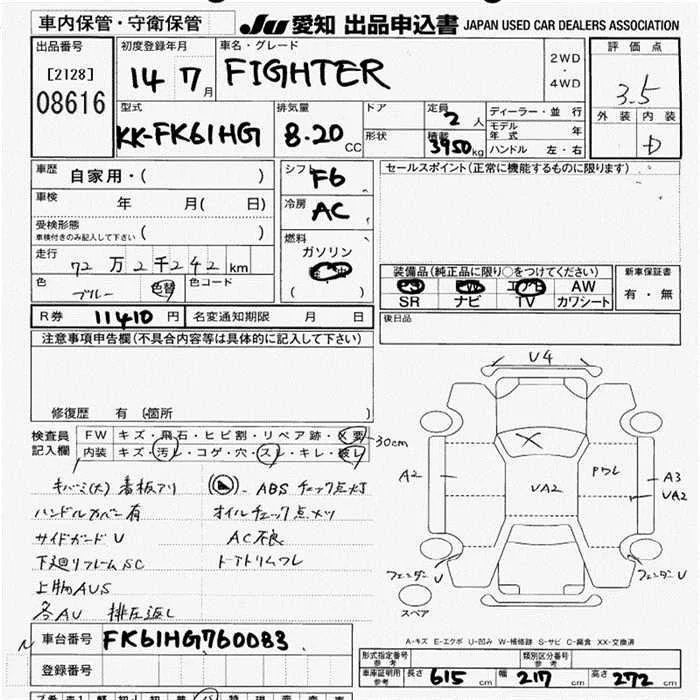 車内保管・守衛保管
JU 愛知 出品申込書 JAPAN USED CAR DEALERS ASSOCIATION
出品番号
[2128]
08616
初度登録年月
14 7月
車名・グレード
FIGHTER
2WD
・
4WD
評価点
3.5
外装 内装
D
型式
KK-FK61HG
排気量
8.20 CC
ドア
形状
定員
2人
積載
3950kg
ディーラー・並行
モデル年式 年
ハンドル 左・右
車歴
自家用・( )
車検
年 月( 日)
受検形態
車検付きのみ記入して下さい ( )
走行
72万2千242km
色
ブルー
色替
色コード
シフト
F6
冷房
AC
燃料
ガソリン
( )
セールスポイント(正常に機能するものに限ります)
装備品(純正品に限り○をつけてください)
PS PW エアB AW
SR ナビ TV カワシート
新車保証書
有・無
R券 11410円
名変通知期限 月 日
後日品
注意事項申告欄(不具合内容等は具体的に記入して下さい)
修復歴 有 (箇所 )
検査員
記入欄
FW キズ・飛石・ヒビ割・リペア跡・X要
30cm
内装 キズ・汚レ・コゲ・穴・スレ・キレ・破レ
キバミ(大) 看板アリ
ABSチェック点灯
ハンドルカバー有
オイルチェック点メツ
サイドガードU
AC不良
下廻リフレームSC
ドアトリムワレ
上物AUS
各AU 排圧返し
U4
A2
UA2
PワレA3
UA2
フェンダーU
フェンダーU
スペア
A-キズ E-エクボ U-凹み W-補修跡 S-サビ C-腐食 XX-交換済
N
車台番号 FK61HG760083
登録番号
形式指定番号
参考
類別区分番号
参考
車庫証明用
参考
長さ 615cm
幅 217cm
高さ 272cm